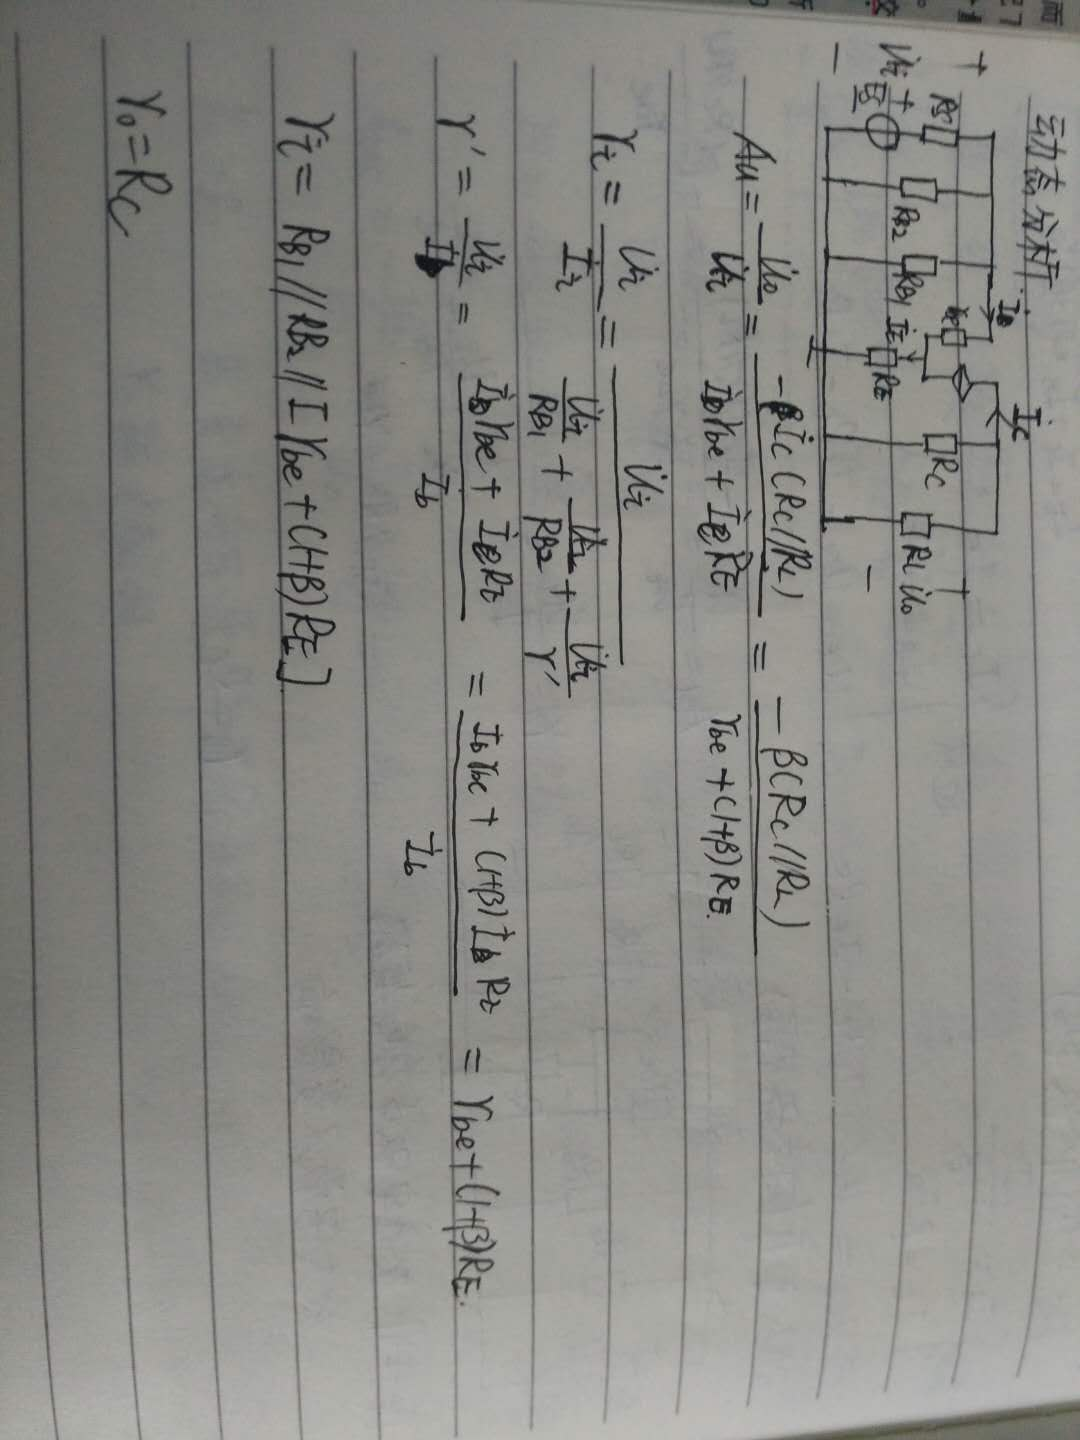 动态分析:
+ Rs RB2 RB1 IB rbe IE RE Ic Rc RL +
U̇i + Es U̇o
− −
Au = U̇o/U̇i = −βİc(Rc//RL)/(İbrbe + İERE) = −β(Rc//RL)/(rbe+(1+β)RE.
ri = U̇i/İi = U̇i/(U̇i/RB1 + U̇i/RB2 + U̇i/r′)
r′ = U̇i/İb = (İbrbe + İERE)/İb = (İbrbe + (1+β)İbRE)/İb = rbe+(1+β)RE.
ri = RB1//RB2//[rbe+(1+β)RE]
ro=Rc